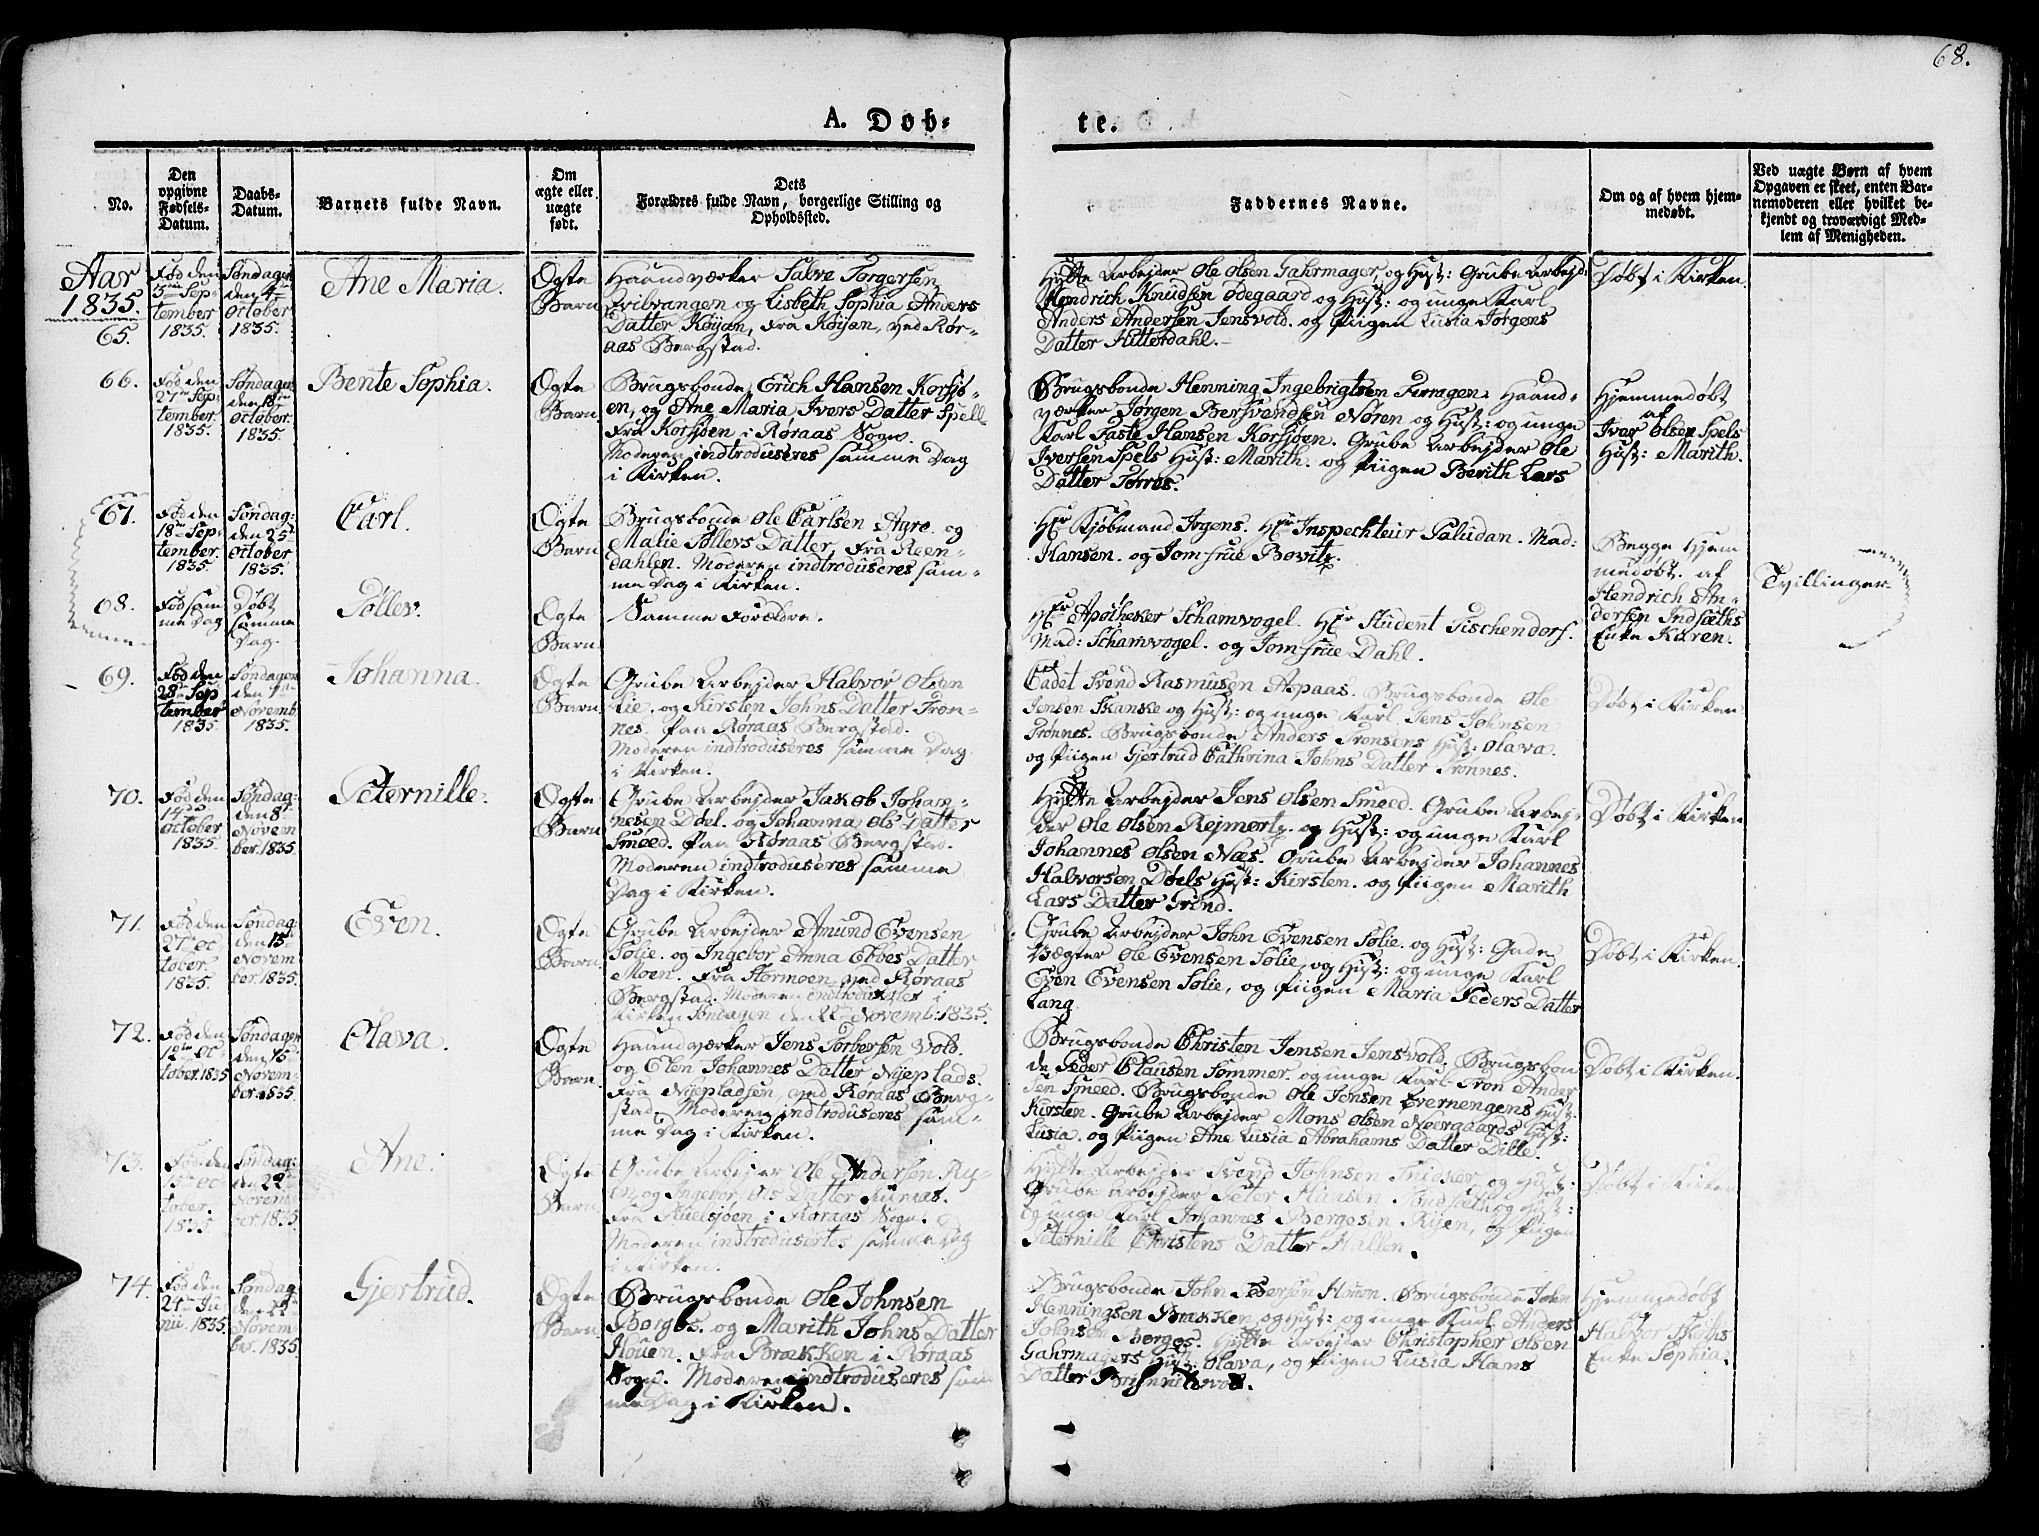 68.
A. Døb-
te.
No.
Den
opgivne
Fødsels-
Datum.
Daabs-
Datum.
Barnets fulde Navn.
Om
ægte eller
uægte
født.
Dets
Forældres fulde Navn, borgerlige Stilling og
Opholdssted.
Faddernes Navne.
Om og af hvem hjem-
medøbt.
Ved uægte Børn af hvem
Opgaven er skeet, enten Bar-
nemoderen eller hvilket be-
kjendt og troværdigt Med-
lem af Menigheden.
Aar
1835.
65.
Fød den
Sep-
tember
1835.
Søndagen
den 4de
October
1835.
Ane Maria.
Ægte
Barn
Haandværker Torgersen
og Lisbeth Sophia Anders
Datter Køjan, fra Køjan, ved Rør-
aas Bergstad.
Hytte Arbejder Ole Olsen Gahrmager, og Hust: Grube Arbejd:
Hendrich Knudsen Ødegaard og Hust: og unge Karl
Anders Andersen Jensvold. og Piigen Lusia Jørgens
Datter Hitterdahl.
Døbt i Kirken
66.
Fød den
27de Sep-
tember.
1835.
Søndagen
den 18de
October.
1835.
Bente Sophia.
Ægte
Barn.
Brugsbonde Erich Hansen Korsjø-
en, og Ane Maria Ivers Datter Spell
fra Korsjøen i Røraas Sogn.
Moderen indtroduseres samme Dag
i Kirken.
Brugsbonde Henning Ingebrigtsen Feragen. Haand-
værker Jørgen Bersvendsen Nøren og Hust: og unge
Karl Faste Hansen Korsjøen. Grube Arbejder Ole
Iversen Spels Hust: Marith. og Piigen Berith Lars
Datter Torres.
Hjemmedøbt
af
Ivar Olsen Spels
Hust: Marith.
67.
Fød den
18de Sep-
tember.
1835.
Søndag:
den 25de
October
1835.
Carl.
Ægte
Barn
Brugsbonde Ole Carlsen Agre. og
Malie Tøllevs Datter, fra Reen-
dahlen. Moderen indtroduseres sam-
me Dag i Kirken.
Hr Kjøbmand Irgens. Hr Inspechteur Paludan. Mad:
Hansen. og Jomfrue Bowitz.
Begge Hjem
medøbt. af
Hendrich An-
dersen Indsæths
Enke Karen.
Tvillinger
68.
Fød sam
me Dag
Døbt
samme
Dag.
Tøllev.
Ægte
Barn
Samme Forældre.
Hr Apotheker Schamvogel. Hr Student Tischendorf.
Mad: Schamvogel. og Jomfrue Dahl.
69.
Fød den
28de Sep
tember
1835.
Søndagen
den
Novemb.
1835.
Johanna.
Ægte
Barn.
Grube Arbejder Halvor Olsen
Lie. og Kirsten Johns Datter Trøn-
nes. paa Røraas Bergstad.
Moderen indtroduseres samme Dag
i Kirken.
Cadet Svend Rasmusen Aspaas. Brugsbonde Ole
Jensen Skanske og Hust: og unge Karl Jens Johnsen
Trønnes. Brugsbonde Anders Tronsens Hust: Olava.
og Piigen Gjertrud Cathrina Johns Datter Trønnes.
Døbt i Kirken
70.
Fød den
14de
October
1835.
Søndag:
den 8de
Novem
ber. 1835.
Peternille.
Ægte
Barn
Grube Arbejder Jakob Johan-
nesen Døel. og Johanna Ols Datter
Smeed. paa Røraas Bergstad.
Moderen indtroduseres samme
Dag i Kirken.
Hytte Arbejder Jens Olsen Smeed. Grube Arbej-
der Ole Olsen Rejmort. og Hust: og unge Karl
Johannes Olsen Næs. Grube Arbejder Johannes
Halvorsen Døels Hust: Kirsten. og Piigen Marith
Lars Datter Grind.
Døbt i Kirken
71.
Fød den
27de Oc
tober.
1835.
Søndag:
den 15de
Novem
ber. 1835.
Even.
Ægte
Barn.
Grube Arbejder Amund Evensen
Solie. og Ingebor Anna Ebbes Datter
Moen. fra Stormoen ved Røraas
Bergstad. Moderen indtroduseres i
Kirken Søndagen den 22de Novemb: 1835.
Grube Arbejder John Evensen Solie. og Hust: Gade
Vægter Ole Evensen Solie. og Hust: og unge Karl
Even Evensen Solie, og Piigen Maria Peders Datter
Lang.
Døbt i Kirken.
72.
Fød den
12te Oc
tober. 1835
Søndagen
den 15de
Novem-
ber. 1835.
Olava.
Ægte
Barn.
Haandværker Jens Torbersen Vold.
og Elen Johannes Datter Nyeplads.
fra Nyepladsen, ved Røraas Berg-
stad. Moderen indtroduseres sam-
me Dag i Kirken.
Brugsbonde Christen Jensen Jensvold. Brugsbon
de Peder Clausen Sommer. og unge Karl Tron Ander
sen Smeed. Brugsbonde Ole Jensen Evernengens Hust:
Kirsten. Grube Arbejder Mons Olsen Noergaards Hust:
Lusia. og Piigen Ane Lusia Abrahams Datter Dille.
Døbt i Kirken.
73.
Fød den
15de Oc
tober.
1835
Søndag:
den 22de
Novem
ber. 1835.
Ane.
Ægte
Barn
Grube Arbejder Ole Andersen Ry-
en, og Ingebor Ols Datter
fra i Røraas Sogn.
Moderen indtroduseres samme Dag
i Kirken.
Hytte Arbejder Svend Johnsen Snicker, og Hust:
Grube Arbejder Peter Hansen Tønesæth og Hust:
og unge Karl Johannes Bergesen Ryen, og Piigen
Peternille Christens Datter Hallen.
Døbt i Kirken
74.
Fød den
24de Ju
nii. 1835.
Søndag
den 22de
Novem
ber. 1835.
Gjertrud.
Ægte
Barn.
Brugsbonde Ole Johnsen
Borgos. og Marith Johns Datter
Houen. fra Brækken i Røraas
Sogn. Moderen indtroduseres sam
me Dag i Kirken.
Brugsbonde John Pedersen Houen. Brugsbonde John
Henningsen Brækken, og Hust: og unge Karl Anders
Johnsen Borgos. Hytte Arbejder Christopher Olsen
Gahrmagers Hust: Olava, og Piigen Lusia Hans
Datter
Hjemmedøbt
Halvor Skoths
Enke Sophia.